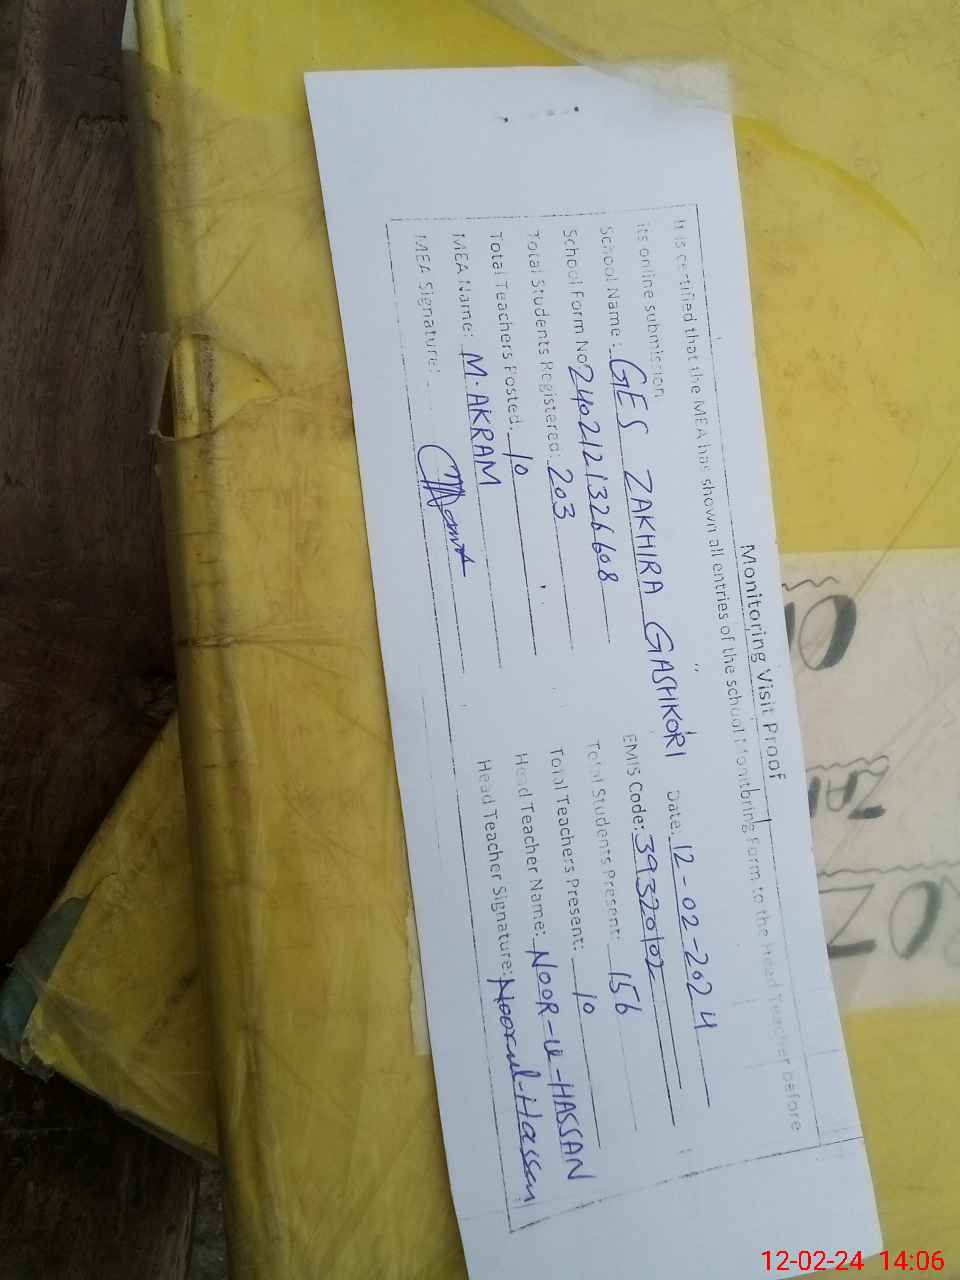 Monitoring Visit Proof
It is certified that the MEA has shown all entries of the school Monitoring Form to the Head Teacher before
its online submission
School Name: GES ZAKHIRA GASHKORI Date: 12-02-2024
School Form No: 2402121326608 EMIS Code: 39320102
Total Students Registered: 203 Total Students Present: 156
Total Teachers Posted: 10 Total Teachers Present: 10
MEA Name: M.AKRAM Head Teacher Name: NOOR-U-HASSAN
MEA Signature: Head Teacher Signature: Noorul-Hassan
12-02-24 14:06